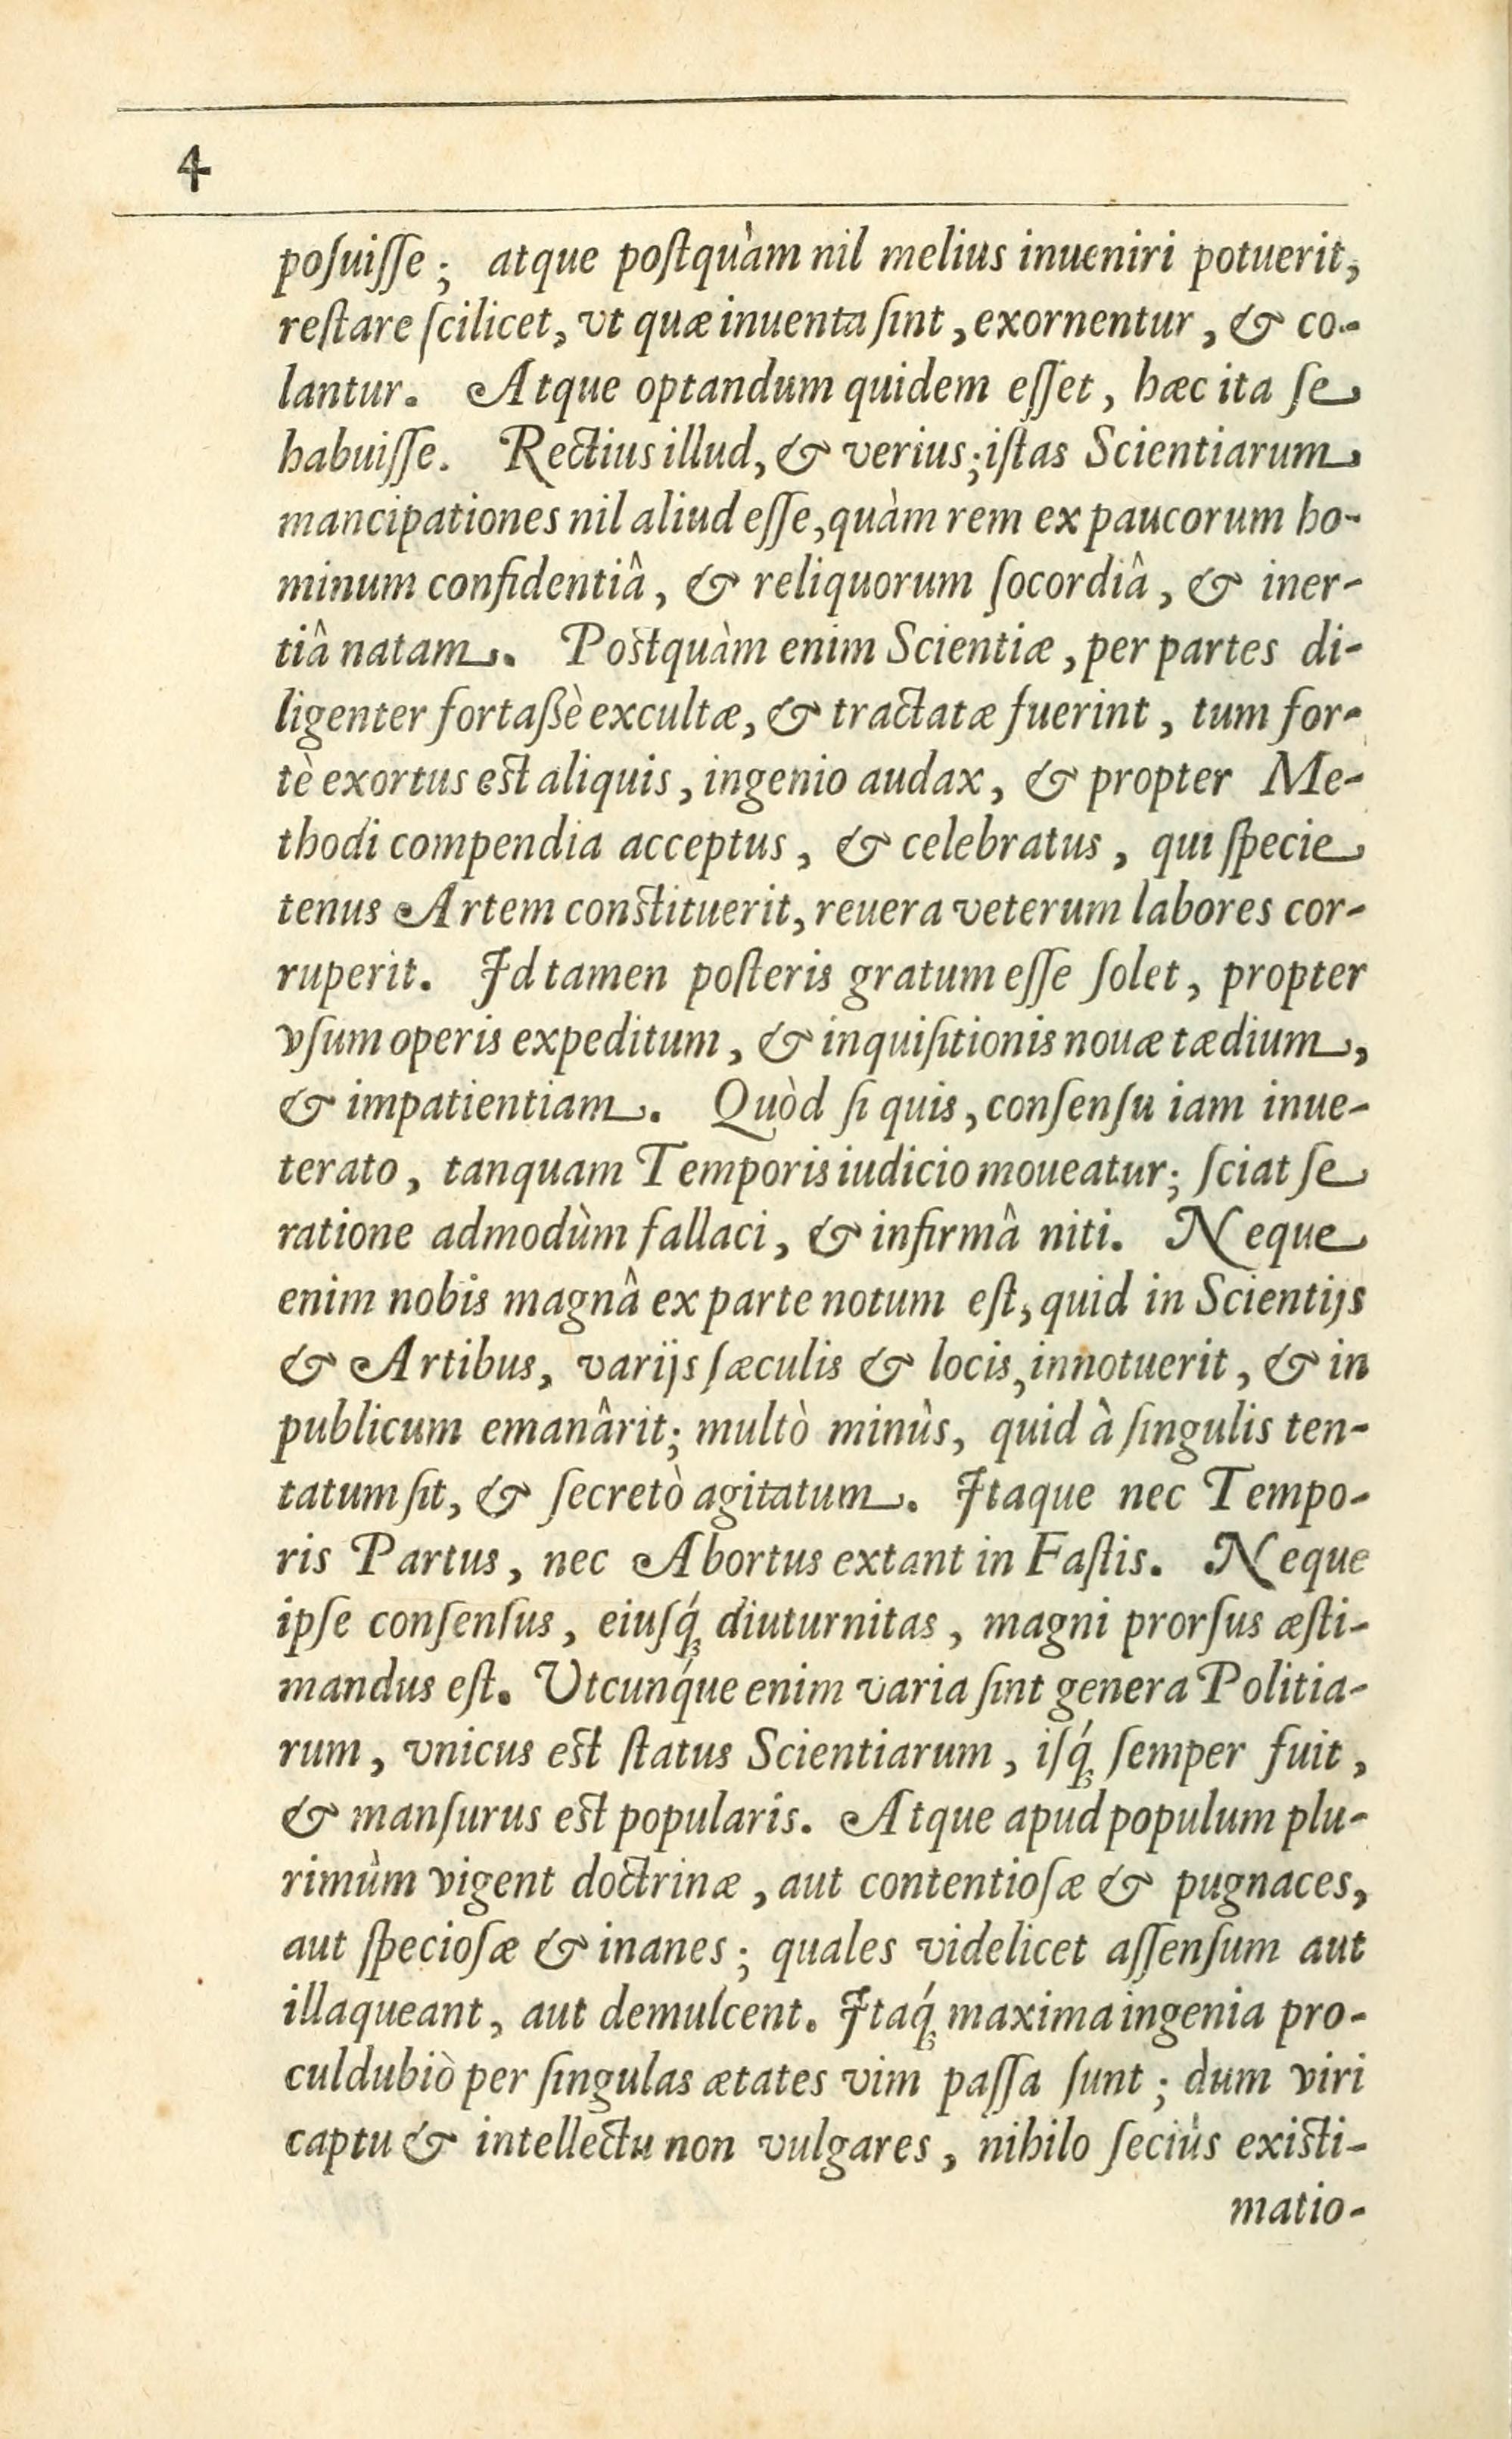 4
poſuiſſe; atque poſtquàm nil melius inueniri potuerit,
reſtare ſcilicet, vt quæ inuenta ſint, exornentur, & co-
lantur. Atque optandum quidem eſſet, hæc ita ſe
habuiſſe. Rectius illud, & verius; iſtas Scientiarum
mancipationes nil aliud eſſe, quàm rem ex paucorum ho-
minum confidentiâ, & reliquorum ſocordiâ, & iner-
tiâ natam. Poſtquàm enim Scientiæ, per partes di-
ligenter fortaßè excultæ, & tractatæ fuerint, tum for-
tè exortus eſt aliquis, ingenio audax, & propter Me-
thodi compendia acceptus, & celebratus, qui ſpecie
tenus Artem conſtituerit, reuera veterum labores cor-
ruperit. Id tamen poſteris gratum eſſe ſolet, propter
vſum operis expeditum, & inquiſitionis nouæ tædium,
& impatientiam. Quòd ſi quis, conſenſu iam inue-
terato, tanquam Temporis iudicio moueatur; ſciat ſe
ratione admodùm fallaci, & infirmâ niti. Neque
enim nobis magnâ ex parte notum eſt, quid in Scientijs
& Artibus, varijs ſæculis & locis, innotuerit, & in
publicum emanârit; multò minùs, quid à ſingulis ten-
tatum ſit, & ſecretò agitatum. Itaque nec Tempo-
ris Partus, nec Abortus extant in Faſtis. Neque
ipſe conſenſus, eiuſq́; diuturnitas, magni prorſus æſti-
mandus eſt. Vtcunq́ue enim varia ſint genera Politia-
rum, vnicus eſt ſtatus Scientiarum, iſq́; ſemper fuit,
& manſurus eſt popularis. Atque apud populum plu-
rimùm vigent doctrinæ, aut contentioſæ & pugnaces,
aut ſpecioſæ & inanes; quales videlicet aſſenſum aut
illaqueant, aut demulcent. Itaq́; maxima ingenia pro-
culdubiò per ſingulas ætates vim paſſa ſunt; dum viri
captu & intellectu non vulgares, nihilo ſeciùs exiſti-
matio-